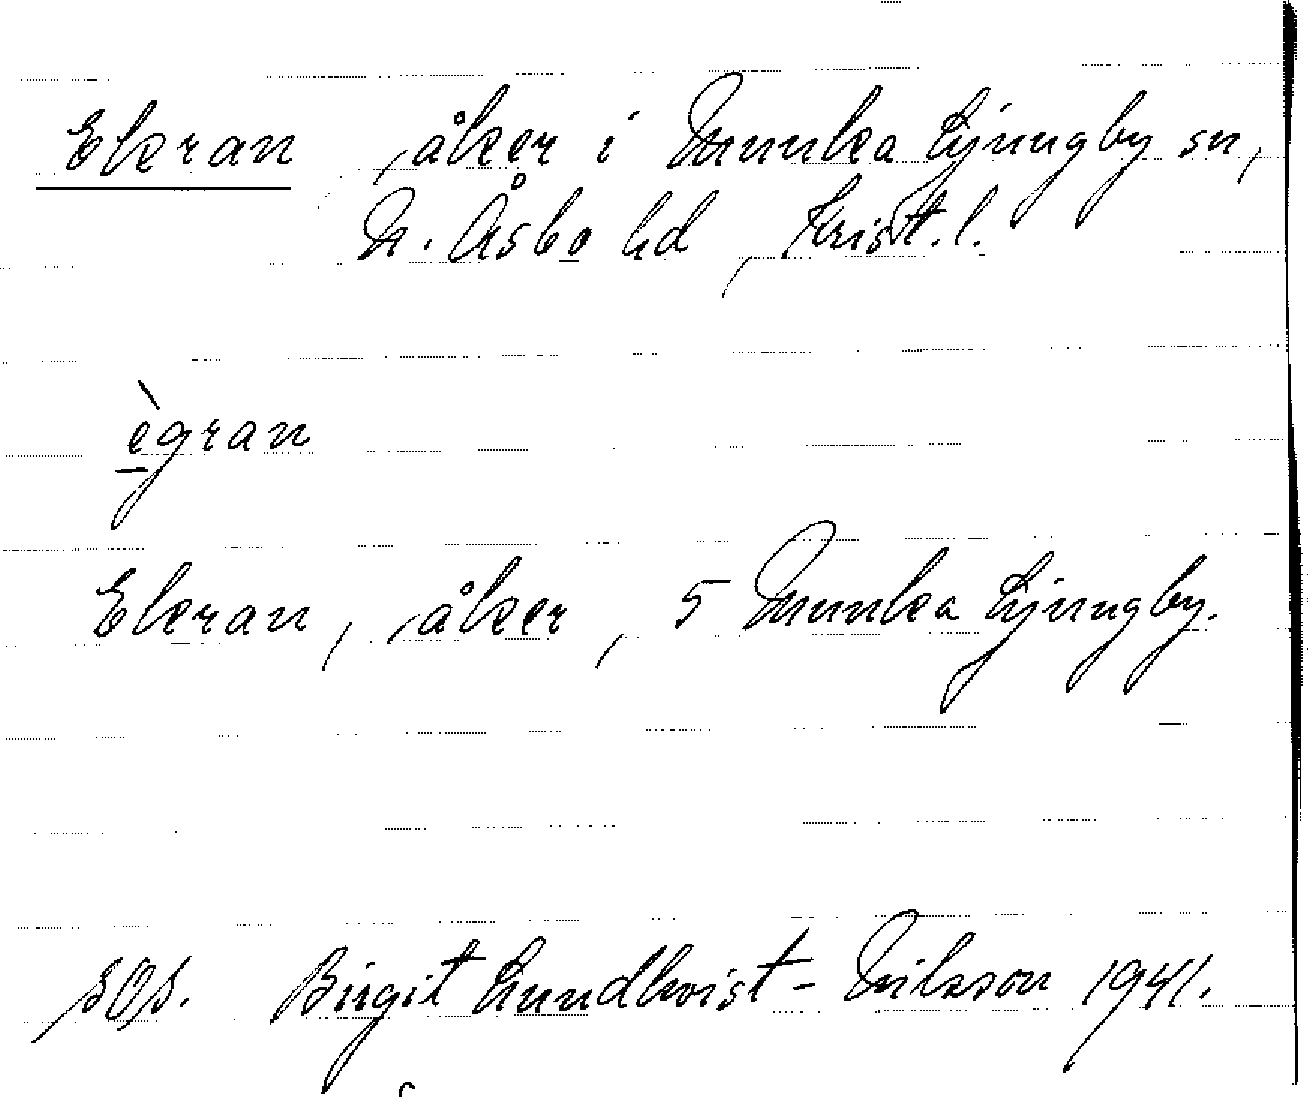 Ekran , åker i Munka Ljungby sn,
N. Åsbo hd, Krist. l.
ègran
Ekran, åker, 5 Munka Ljungby.
SOS. Birgit Lundkvist-Nilsson 1941.